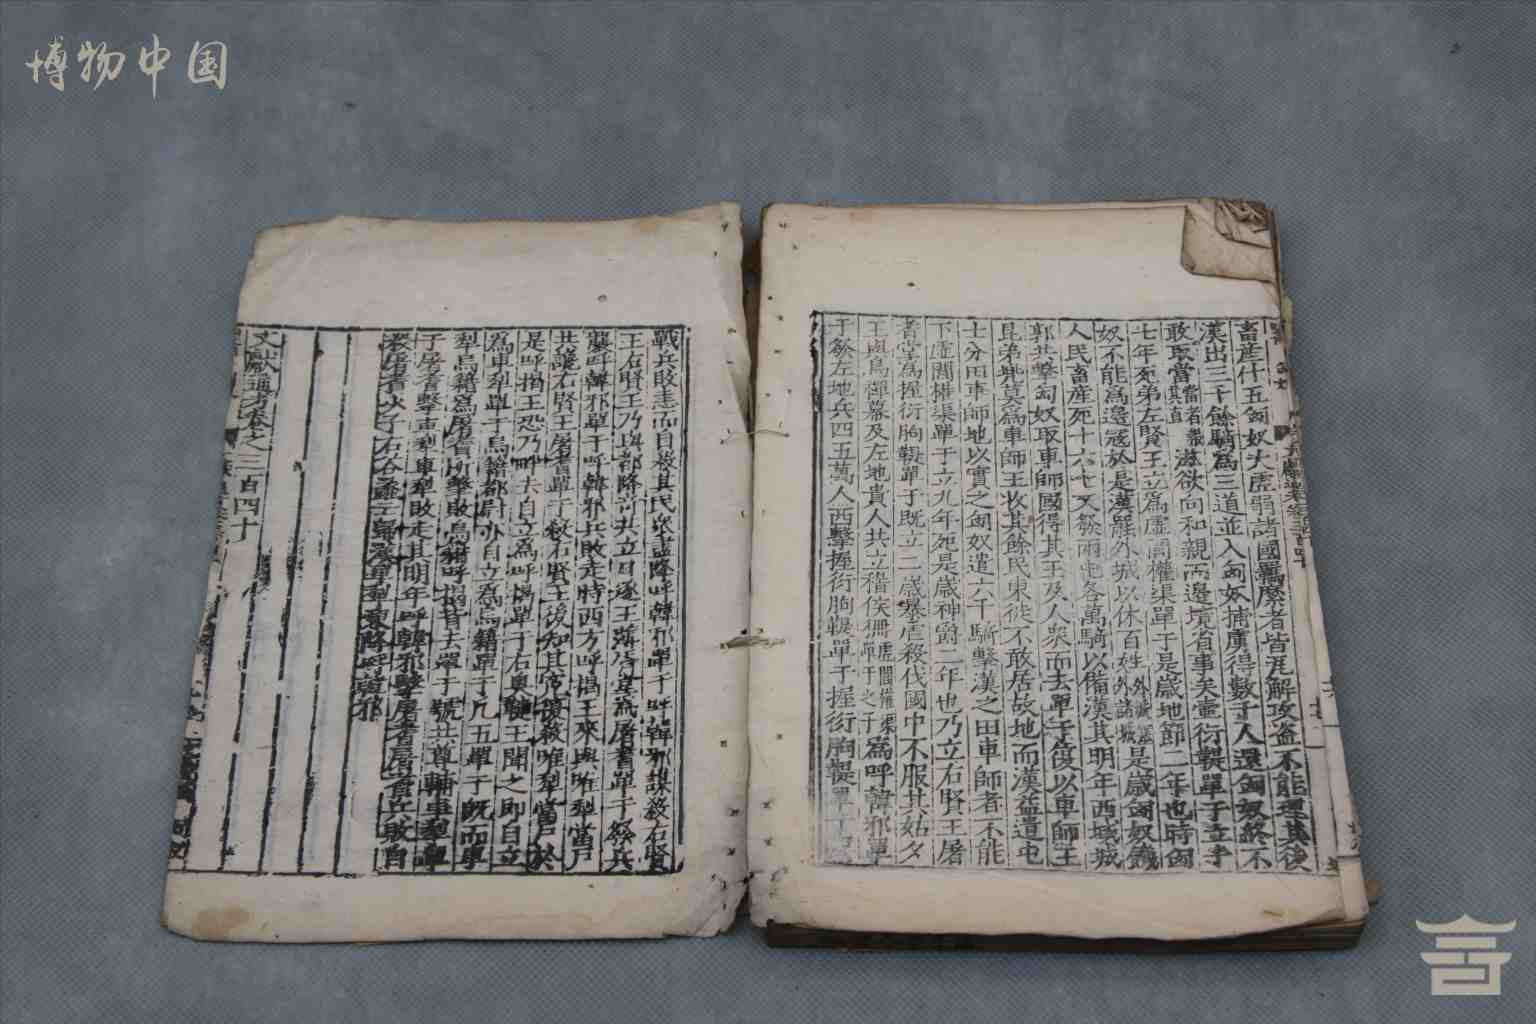 博物中国
畜産什五匈奴大虚弱諸國羈屬者皆瓦解攻盗不能理其後
漢出三千餘騎爲三道並入匈奴捕虜得數千人還匈奴終不
敢取當滋欲向和親而邊境省事矣壷衍鞮單于立十
七年死弟左賢王立爲虚閭權渠單于是歲地節二年也時匈
奴不能爲邊寇於是漢罷外城以休百姓是歲匈奴饑
人民畜産死十六七又發兩屯各萬騎以備漢其明年西域城
郭共擊匈奴取車師國得其王及人衆而去單于復以車師王
昆弟兜莫爲車師王收其餘民東徙不敢居故地而漢益遣屯
士分田車師地以實之匈奴遣六千騎擊漢之田車師者不能
下虚閭權渠單于立九年死是歲神爵二年也乃立右賢王屠
耆堂爲握衍朐鞮單于既立二歲暴虐殺伐國中不服其姑夕
王與烏禪幕及左地貴人共立稽侯狦虚閭權渠單于之子爲呼韓邪單
于發左地兵四五萬人西擊握衍朐鞮單于握衍朐鞮單于
戰兵敗恚而自殺其民衆盡降呼韓邪單于呼韓邪謀殺右賢
王右賢王乃與都隆奇共立日逐王薄胥堂爲屠耆單于發兵
襲呼韓邪單于呼韓邪兵敗走時西方呼揭王來與唯犂當户
共讒右賢王屠耆單于殺右賢王後知其冤復殺唯犂當户於
是呼揭王恐乃畔去自立爲呼揭單于右奥鞬王聞之即自立
爲車犂單于烏籍都尉亦自立爲烏籍單于凡五單于既而車
犂烏籍爲屠耆所擊敗烏籍呼揭皆去單于號共尊輔車犂單
于屠耆擊車犂車犂敗走其明年呼韓邪擊屠耆屠耆兵敗自
殺屠耆少子右谷蠡王歸漢車犂東降呼韓邪
文獻通考卷之三百四十